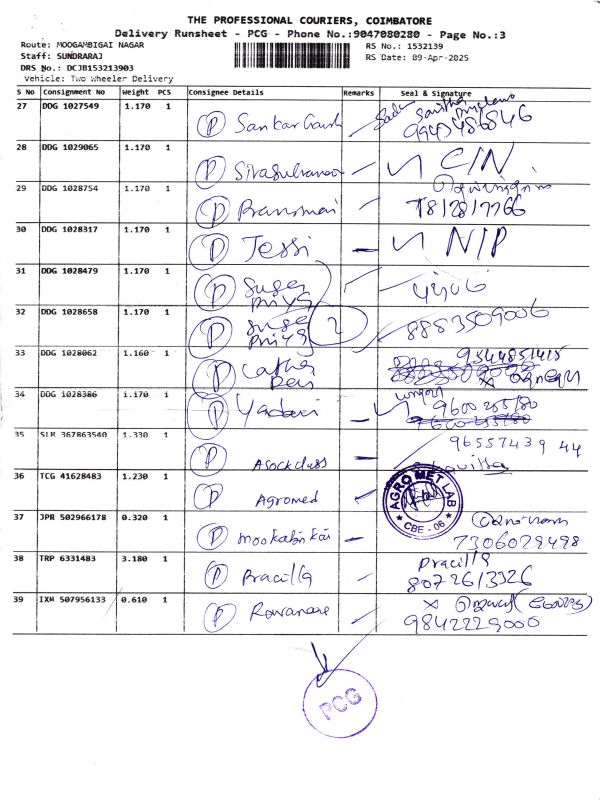 THE PROFESSIONAL COURIERS, COIMBATORE
Delivery Runsheet - PCG - Phone No.:9047080280 - Page No.:3
Route: MOOGAMBIGAI NAGAR RS No.: 1532139
Staff: SUNDRARAJ RS Date: 09-Apr-2025
DRS No.: DCJB153213903
Vehicle: Two Wheeler Delivery
S No Consignment No Weight PCS Consignee Details Remarks Seal & Signature
27 DDG 1027549 1.170 1 P Sankar
9943486846
28 DDG 1029065 1.170 1 P C/N
29 DDG 1028754 1.170 1 P
30 DDG 1028317 1.170 1 P Jessi N/P
31 DDG 1028479 1.170 1 P Susa
Priya
32 DDG 1028658 1.170 1 P Susa
Priya 2 8883509006
33 DDG 1028062 1.160 1 P Cathe
9344851415
34 DDG 1028386 1.170 1 P Yadavi
9600255780
35 SLM 367863540 1.330 1 P Asock class 9655743944
36 TCG 41628483 1.230 1 P Agromed AGRO MET LAB CBE - 06
37 JPR 502966178 0.320 1 P mookabikai
7306029498
38 TRP 6331483 3.180 1 P Pracilla Pracilla
8072613326
39 IXM 507956133 0.610 1 P
9842229000
PCG